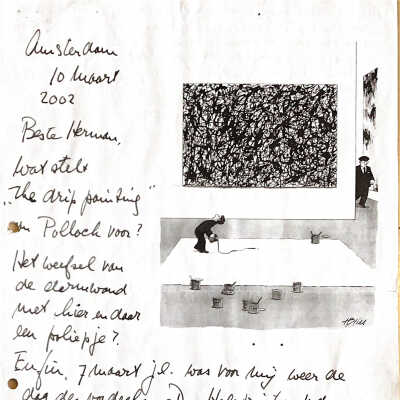 Amsterdam
10 maart
2002
Beste Herman,
wat stelt
"The drip painting"
van Polloch voor?
Het weefsel van
de darmwand
met hier en daar
een poliepje?
Enfin, 7 maart jl. was voor mij weer de
dag der